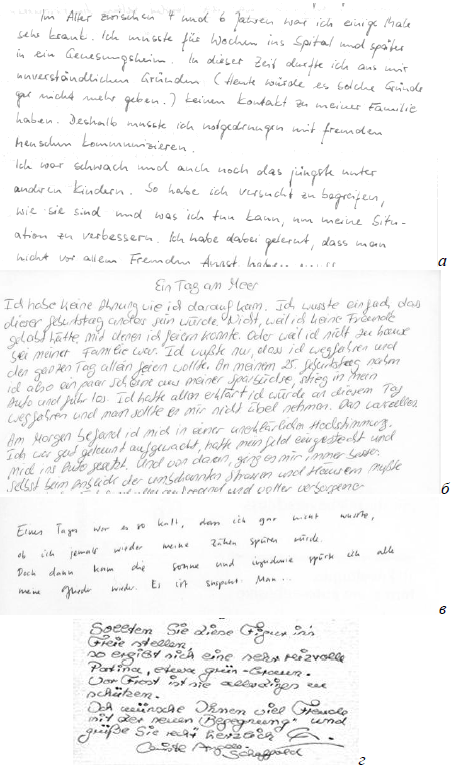 Im Alter zwischen 4 und 6 Jahren war ich einige Male
sehr krank. Ich musste für Wochen ins Spital und später
in ein Genesungsheim. In dieser Zeit durfte ich aus mir
unverständlichen Gründen (Heute würde es solche Gründe
gar nicht mehr geben.) keinen Kontakt zu meiner Familie
haben. Deshalb musste ich notgedrungen mit fremden
Menschen kommunizieren.
Ich war schwach und auch noch das jüngste unter
andren Kindern. So habe ich versucht zu begreifen,
wie sie sind und was ich tun kann, um meine Situ-
ation zu verbessern. Ich habe dabei gelernt, dass man
nicht vor allem Fremden Angst haben
а
Ein Tag am Meer
Ich habe keine Ahnung wie ich darauf kam. Ich wusste einfach, das
dieser Geburtstag anders sein würde. Nicht, weil ich keine Freunde
gehabt hätte, mit denen ich feiern konnte. Oder weil ich nicht zu hause
bei meiner Familie war. Ich wußte nur, dass ich wegfahren und
den ganzen Tag allein feiern wollte. An meinem 25. Geburtstag nahm
ich also ein paar Scheine aus meiner Sparbüchse, stieg in mein
Auto und fuhr los. Ich hatte allen erklärt ich würde an diesem Tag
wegfahren und man sollte es mir nicht übel nehmen. Das
Am Morgen befand ich mich in einer unerklärlichen Hochstimmung.
Ich war gut gelaunt aufgewacht, hatte mein Geld eingesteckt und
mich ins Auto gesetzt. Und von da an, ging es mir immer besser.
Selbst beim Anblick der Strassen und Häusern mußte
und voller verborgener
б
Eines Tages war es so kalt, dass ich gar nicht wusste,
ob ich jemals wieder meine Zehen spüren würde.
Doch dann kam die Sonne und spürte ich alle
meine Glieder wieder. Es ist Man...
в
Sollten Sie diese Figur in's
Freie stellen,
so ergibt sich eine sehr reizvolle
Patina, etwa grün-braun.
Vor Frost ist sie allerdings zu
schützen.
Ich wünsche Ihnen viel Freude
mit der neuen "Begegnung" und
grüße Sie recht herzlich
г